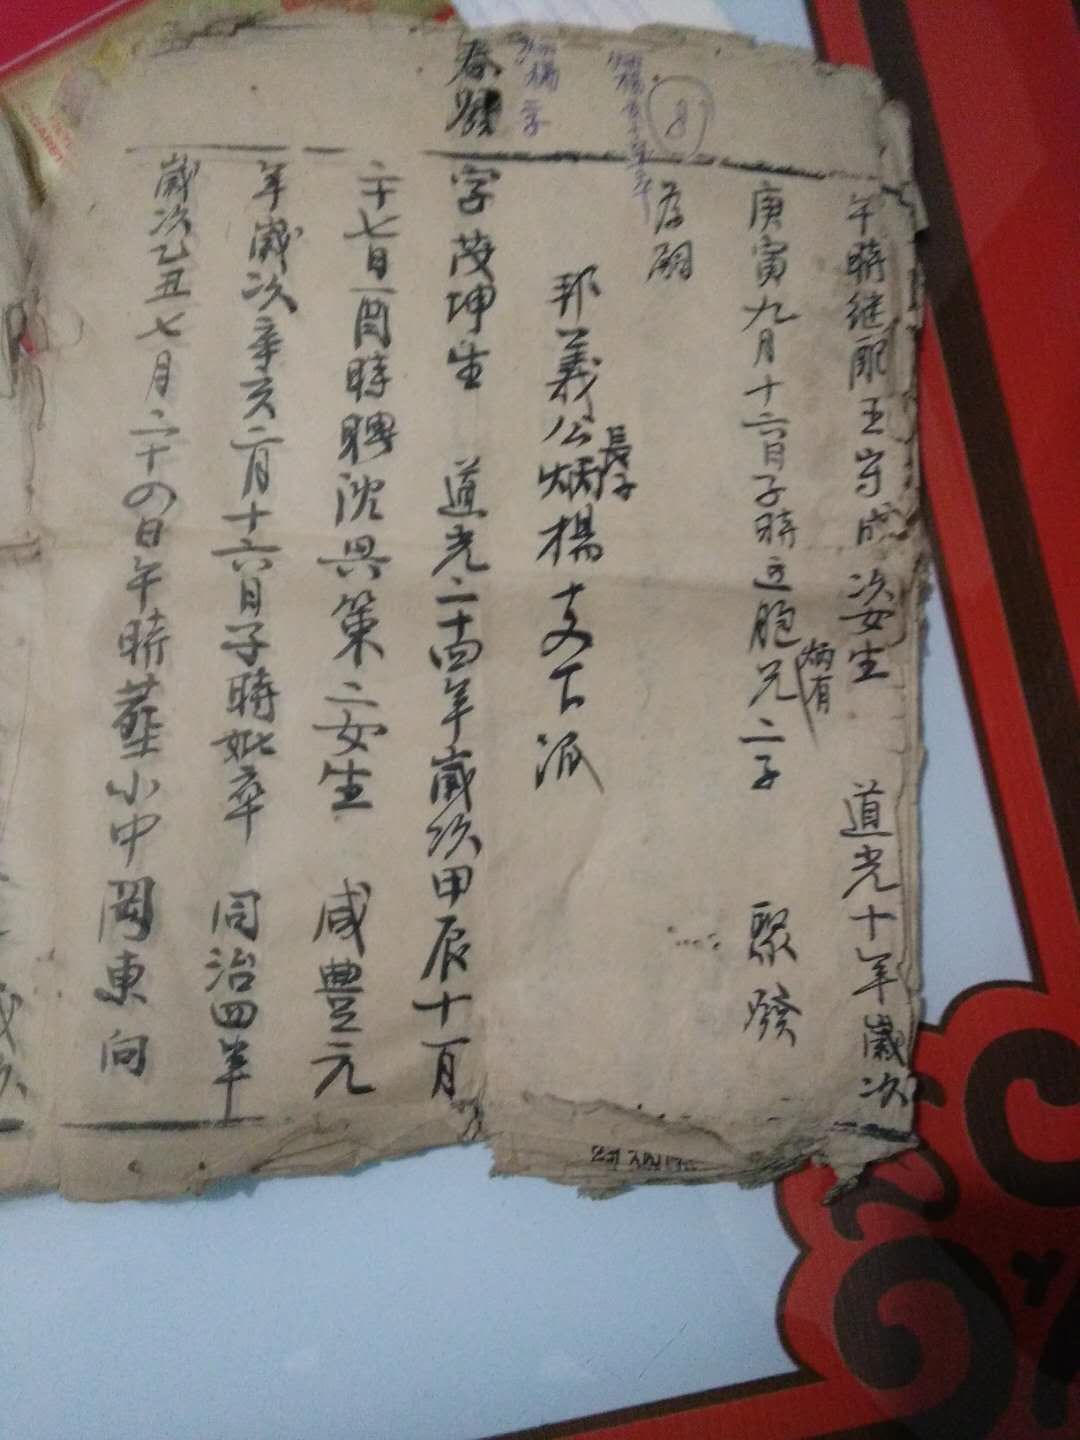 午時继配王守成次女生 道光十年歲次
庚寅九月十六日子時立胞兄炳有二子 聚發
為嗣
邦義公長子炳楊支下派
春發
字茂坤生 道光二十四年歲次甲辰十一月
二十七日酉時聘沈興策二女生 咸豐元
年歲次辛亥二月十六日子時妣卒 同治四年
歲次乙丑七月二十四日午時葬小中岡東向
8
炳楊
炳楊之子